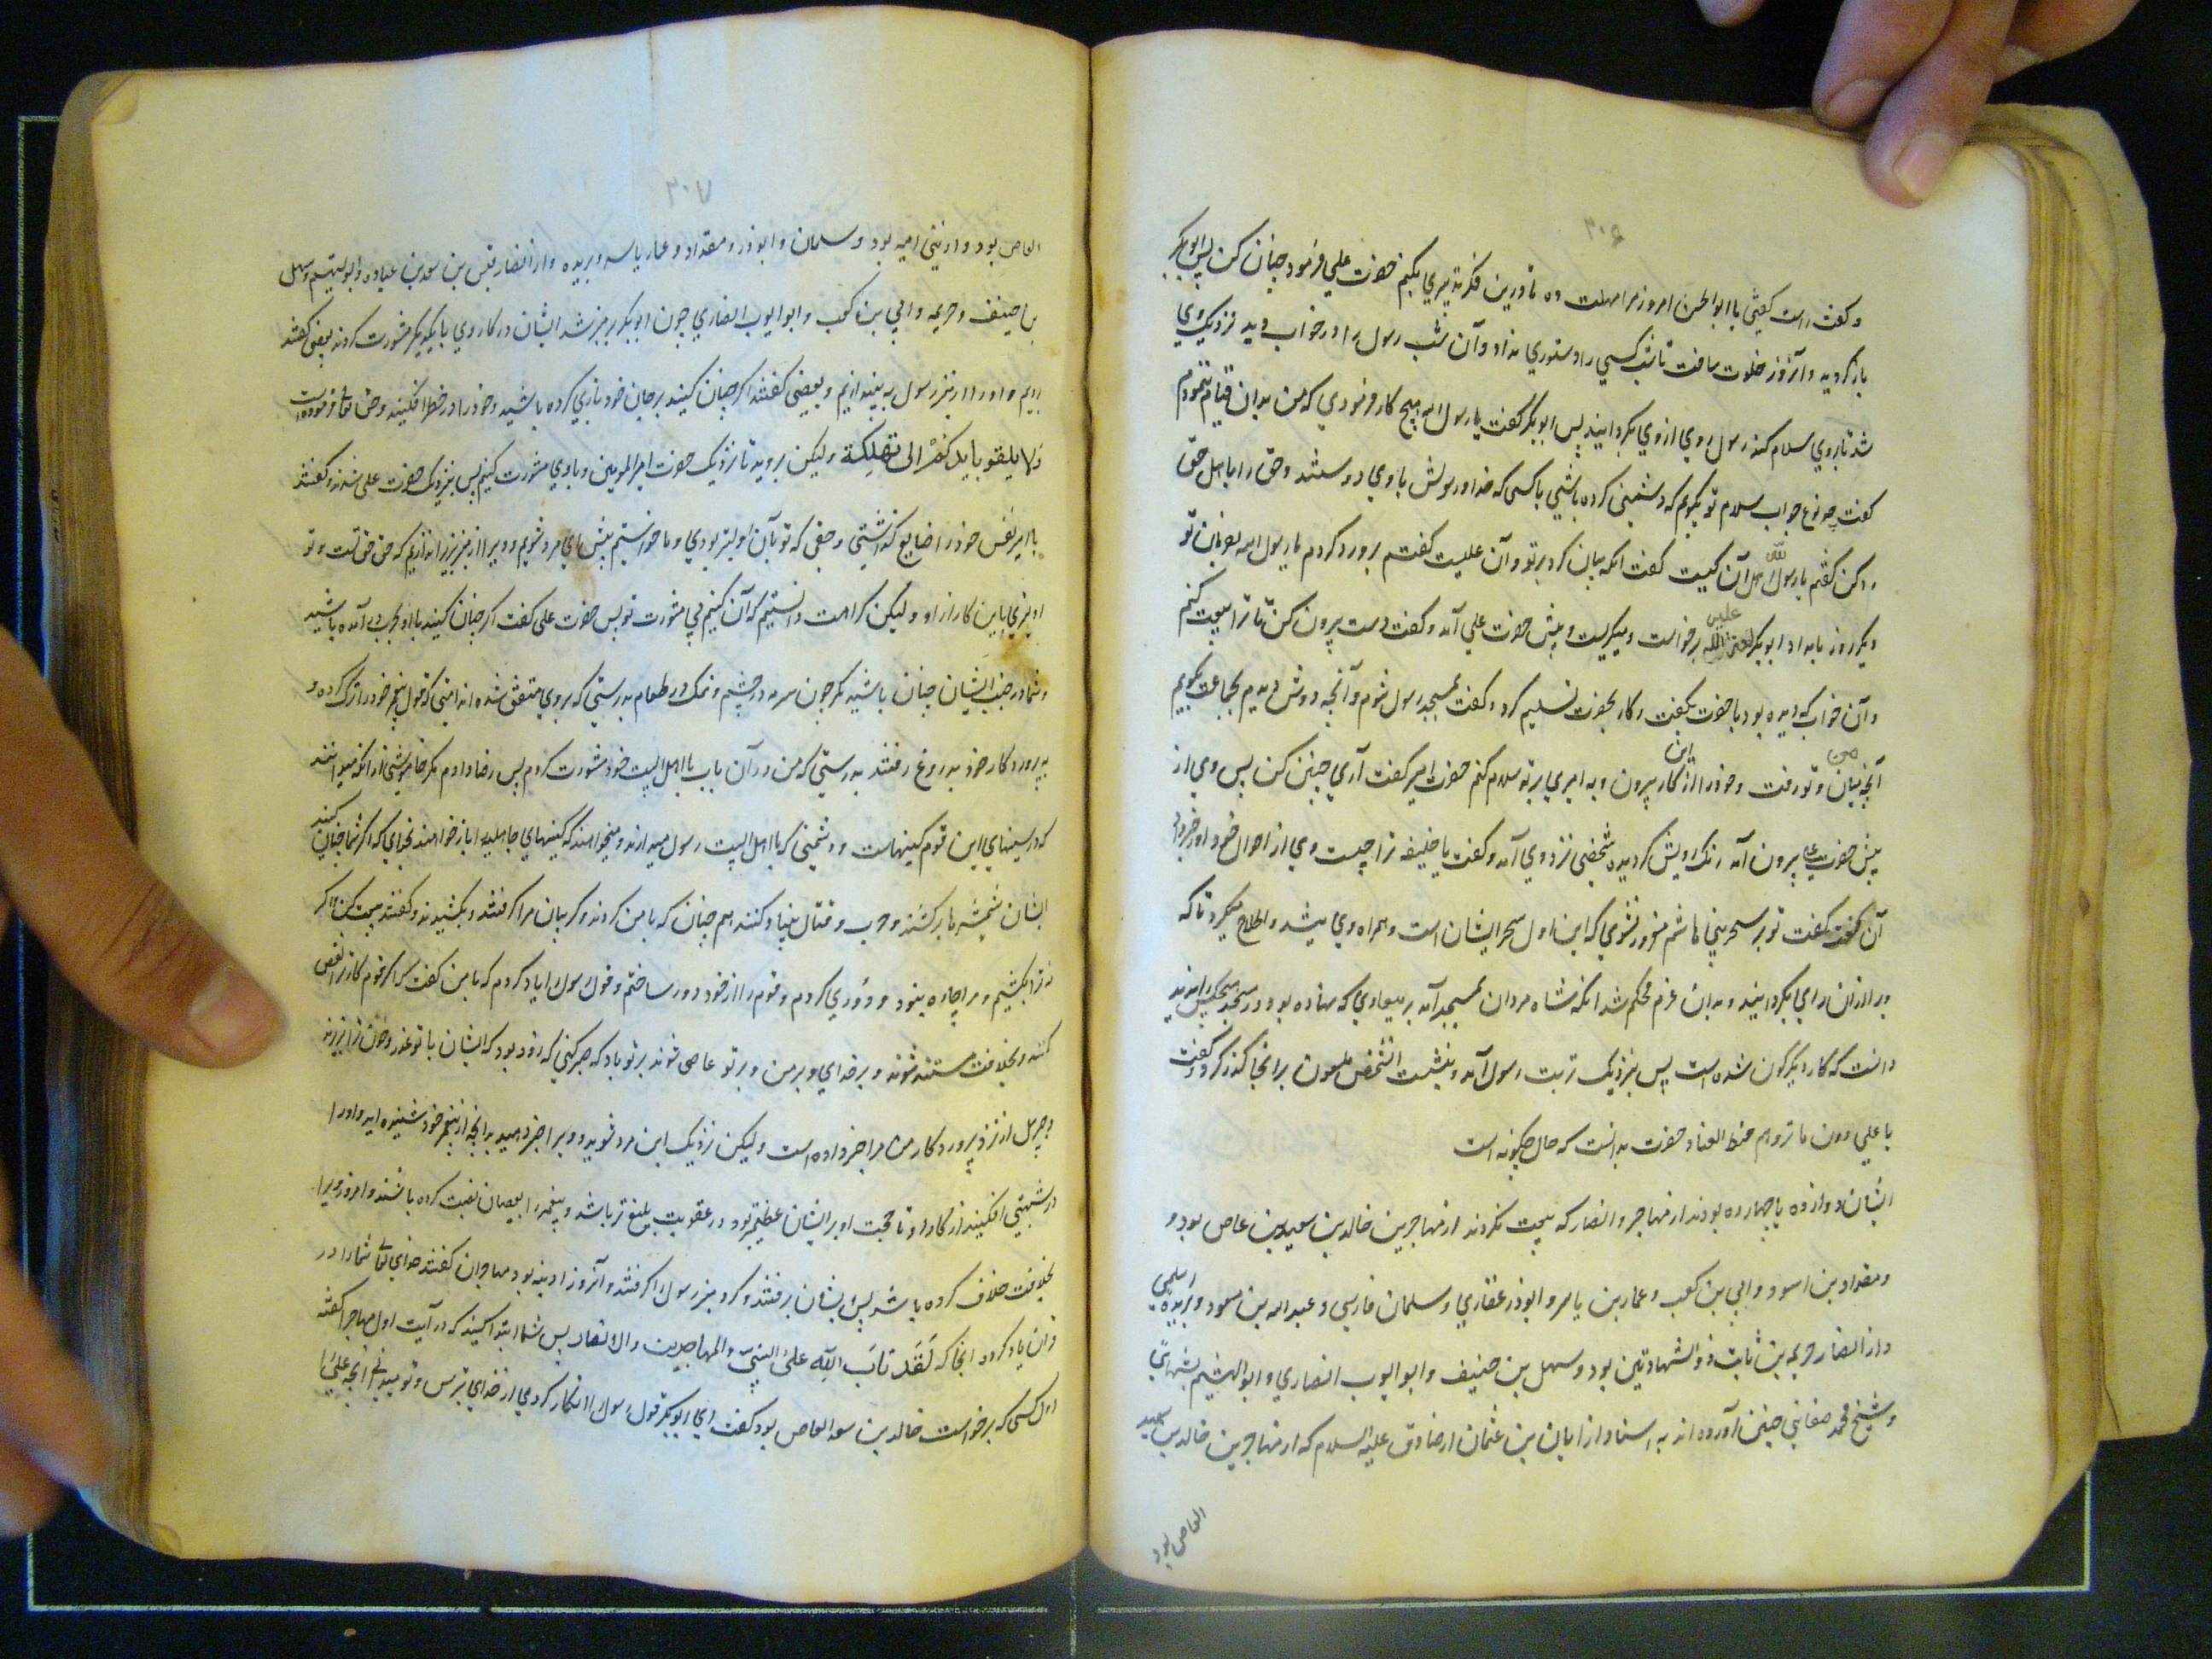 ۳۰۶
و گفت راست گفتی یا ابوالحسن امروز مرا مهلت ده تا درین فکر تدبیری بکنم حضرت علی فرمود چنان کن پس ابوبکر
باز گردید و آنروز خلوت ساخت تا شب کسی را دستوری نداد و آن شب رسول را در خواب دید نزدیک وی
شد تا بروی سلام کند رسول روی از وی بگردانید پس ابوبکر گفت یا رسول الله هیچ کار فرمودی که من بدان قیام ننمودم
گفت چه نوع جواب سلام تو بگویم که دشمنی کرده باشی با کسی که خدا و رسولش با وی دوستند و حق را باهل حق
رد کن گفتم یا رسول الله اهل آن کیست گفت انکه بیان کرد بر تو و آن علیست گفتم برو رد کردم یا رسول الله بفرمان تو
دیگر روز بامداد ابوبکر برخواست و میگریست و پیش حضرت علی آمد و گفت دست بیرون کن تا ترا بیعت کنم
و آن خواب که دیده بود با حضرت بگفت و کار بحضرت تسلیم کرد و گفت بمسجد رسول شوم و آنچه دوش دیدم بجماعت بگویم
آنچه میان من و تو رفت و خود را از این کار بیرون و به امیری بر تو سلام کنم حضرت امیر گفت آری چنین کن پس وی از
پیش حضرت علی بیرون آمد رنک رویش گردیده شخصی نزد وی آمد و گفت یا خلیفه ترا چیست وی از احوال خود او را خبر داد
آن گفت تو بر سحر بنی هاشم مغرور نشوی که این اول سحر ایشان است و همراه وی میشد و الحاح میکرد تا که
ویرا از آن رای بگردانید و بدان عزم محکم شد انکه شاه مردان بمسجد آمد بر میعادی که نهاده بود در مسجد هیچکس را ندید
دانست که کار دیگرگون شده است پس بنزدیک تربت رسول آمد و بنشست انشخص ملعون برانجا گذر کرد و گفت
یا علی دون ما تروم خرط القتاد حضرت بدانست که حال چگونه است
ایشان دوازده یا چهارده بودند از مهاجر و انصار که بیعت نکردند از مهاجرین خالد بن سعید بن عاص بود و
و مقداد بن اسود و ابی بن کعب و عمار بن یاسر و ابوذر غفاری و سلمان فارسی و عبدالله بن مسعود و بریده اسلمی
و از انصار خزیمه بن ثابت ذوالشهادتین بود و سهل بن حنیف و ابو ایوب انصاری و ابوالهیثم تیهان
و شیخ محمد صفاینی چنین آورده اند به اسناد از ابان بن عثمان از صادق علیه السلام که از مهاجرین خالد بن سعید
العاص بود
۳۰۷
العاص بود و از بنی امیه بود و سلمان و ابوذر و مقداد و عمار یاسر و بریده و از انصار قیس بن سعد بن عباده و ابولهیثم و سهل
بن حنیف و خزیمه و ابی بن کعب و ابو ایوب انصاری چون ابوبکر بر منبر شد ایشان در کار وی با یکدیگر مشورت کردند بعضی گفتند
رویم و او را از منبر رسول به بیندازیم و بعضی گفتند اگر چنان کنید بر جان خود بازی کرده باشید و خود را در خطر افکنید و حق تعالی فرموده است
ولا یلقو بایدکم الی تهلکة ولیکن بروید تا نزدیک حضرت امیرالمومنین و با وی مشورت کنیم پس بنزدیک حضرت علی شدند و گفتند
یا امیر نفس خود را ضایع گذاشتی و حقی که تو بآن اولیتر بودی و ما خواستیم پیش این مرد شویم و ویرا از منبر بزیر اندازیم که حق حق تست و تو
اولیتری باین کار از او ولیکن کراهت دانستیم که آن کنیم بی مشورت تو پس حضرت علی گفت اگر چنان کنید با او بحرب آمده باشید
و شما در جنب ایشان چنان باشید مگر چون سرمه در چشم و نمک در طعام بدرستی که بروی متفق شده اند امتی که قول پیغمبر خود را ترک کرده و
به پروردگار خود بدروغ رفتند بدرستی که من در آن باب با اهل البیت خود مشورت کردم پس رضا دادم مگر خاموشی از انکه میدانند
که در سینهای این قوم کینهاست و دشمنی که با اهل البیت رسول میدارند و میخواهند که کینهای جاهلیه را باز خواهند بخدای که اگر شما چنان کنید
ایشان شمشیرها بر کشند و حرب و قتال بنیاد کنند هم چنان که با من کردند و گریبان مرا گرفتند و بکشیدند و گفتند بیعت کن و اگر
نه ترا بکشیم و مرا چاره نبود و دوری کردم و قوم را از خود دور ساختم و قول رسول را یاد کردم که با من گفت که اگر قوم کار ترا نقض
کنند و بخلافت مستند شوند و بر خدای و بر من و بر تو عاصی شوند بر تو باد که صبر کنی که زود بود که ایشان با تو غدر و خون ترا بریزند
و جبرئیل از نزد پروردگار من مرا خبر داده است ولیکن نزدیک این مرد شوید و ویرا خبر دهید بدانچه از پیغمبر خود شنیده اید و او را
در شبهتی افکنید از کار او تا حجت او بر ایشان عظیمتر بود و در عقوبت بلیغ تر باشد و پیغمبر را بعصیان نسبت کرده باشند و امروز ویرا
بخلافت خلاف کرده باشد پس ایشان برفتند و گرد منبر رسول را گرفتند و آنروز ادینه بود مهاجران گفتند خدای تعالی شما را در
قرآن یاد کرد انجا که لقد تاب الله علی النبی والمهاجرین والانصار پس شما ابتدا کنید که در آیت اول مهاجر گفته
اول کسی که برخواست خالد بن سعد العاص بود گفت ای ابوبکر قول رسول را انکار کردی از خدای بترس و تو میدانی انچه علی را